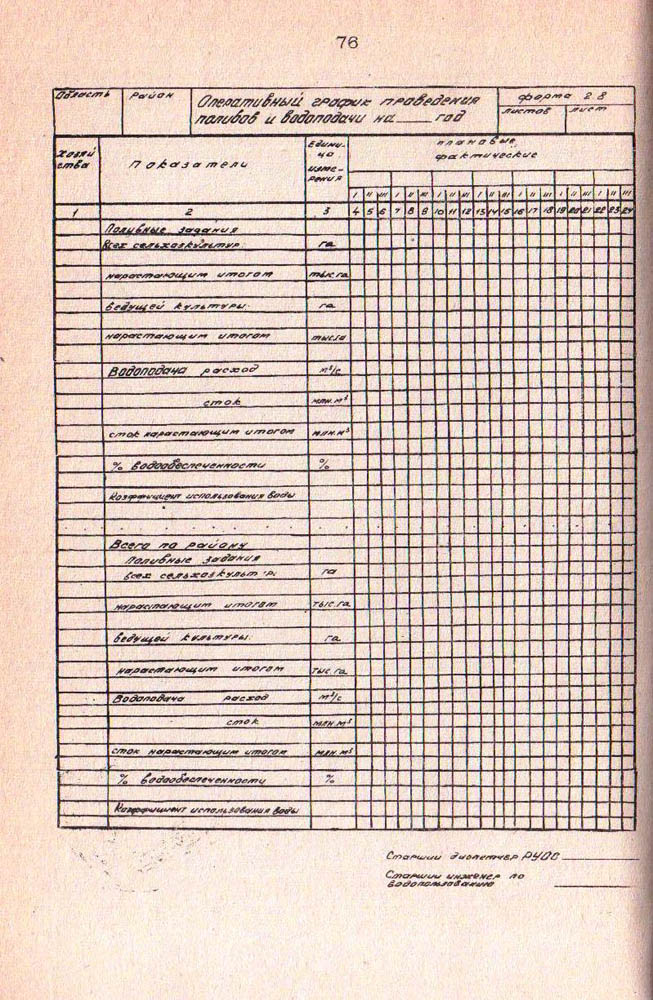 76
Область Район Оперативный график проведения форма 2.8
поливов и водоподачи на ____ год листов лист
Хозяй Показатели Едини- плановые
ства ца фактические
измерения
I II III I II III I II III I II III I II III I II III I II III
1 2 3 4 5 6 7 8 9 10 11 12 13 14 15 16 17 18 19 20 21 22 23 24
Поливные задания
всех сельхозкультур га
нарастающим итогом тыс.га
ведущей культуры: га
нарастающим итогом тыс.га
Водоподача расход м³/с
сток млн.м³
сток нарастающим итогом млн.м³
% водообеспеченности %
Коэффициент использования воды
Всего по району
Поливные задания
всех сельхозкультур: га
нарастающим итогом тыс.га
ведущей культуры: га
нарастающим итогом тыс.га
Водоподача расход м³/с
сток млн.м³
сток нарастающим итогом млн.м³
% водообеспеченности %
Коэффициент использования воды
Старший диспетчер РУОС
Старший инженер по
водопользованию